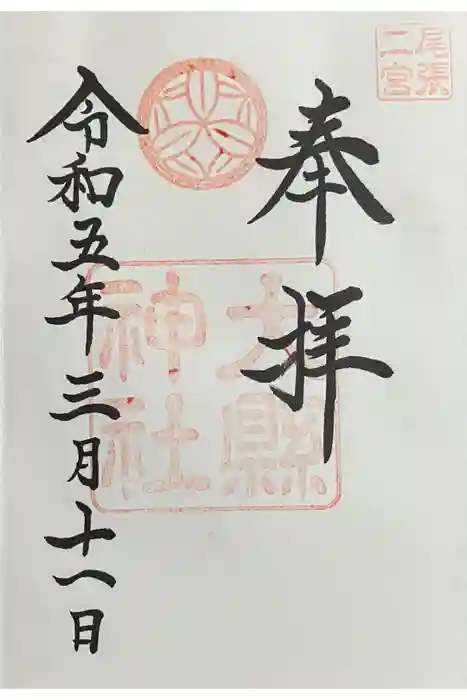 尾張二宮
奉拝
大縣神社
令和五年三月十一日